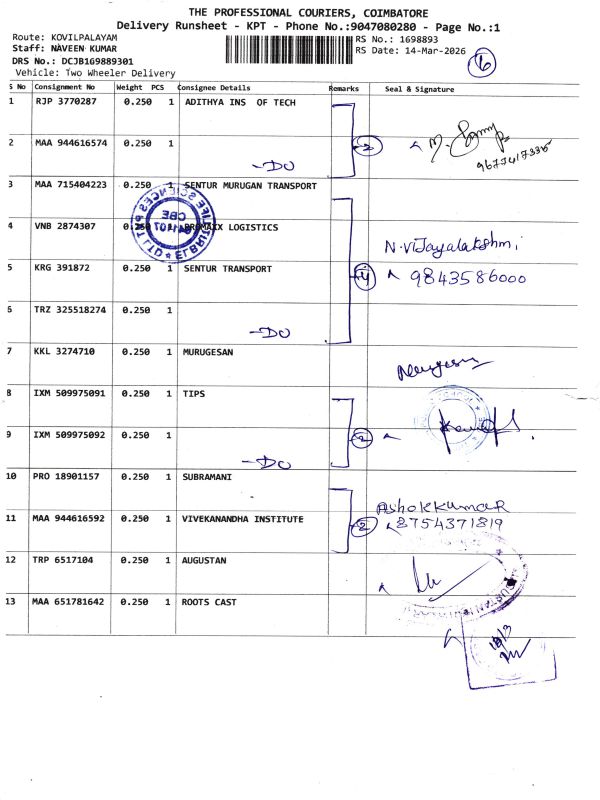 THE PROFESSIONAL COURIERS, COIMBATORE
Delivery Runsheet - KPT - Phone No.:9047080280 - Page No.:1
Route: KOVILPALAYAM
RS No.: 1698893
Staff: NAVEEN KUMAR
RS Date: 14-Mar-2026
DRS No.: DCJB169889301
Vehicle: Two Wheeler Delivery
6
S No Consignment No Weight PCS Consignee Details Remarks Seal & Signature
1 RJP 3770287 0.250 1 ADITHYA INS OF TECH
2 MAA 944616574 0.250 1
-DO 2
3 MAA 715404223 0.250 1 SENTUR MURUGAN TRANSPORT
CBE
4 VNB 2874307 0.250 1 PROMAXX LOGISTICS
N. Vijayalakshmi
5 KRG 391872 0.250 1 SENTUR TRANSPORT 4 9843586000
6 TRZ 325518274 0.250 1
-DO
7 KKL 3274710 0.250 1 MURUGESAN
Murugesan
8 IXM 509975091 0.250 1 TIPS
9 IXM 509975092 0.250 1 2
-DO
10 PRO 18901157 0.250 1 SUBRAMANI
Ashokkumar
11 MAA 944616592 0.250 1 VIVEKANANDHA INSTITUTE 2 8754371819
12 TRP 6517104 0.250 1 AUGUSTAN
13 MAA 651781642 0.250 1 ROOTS CAST